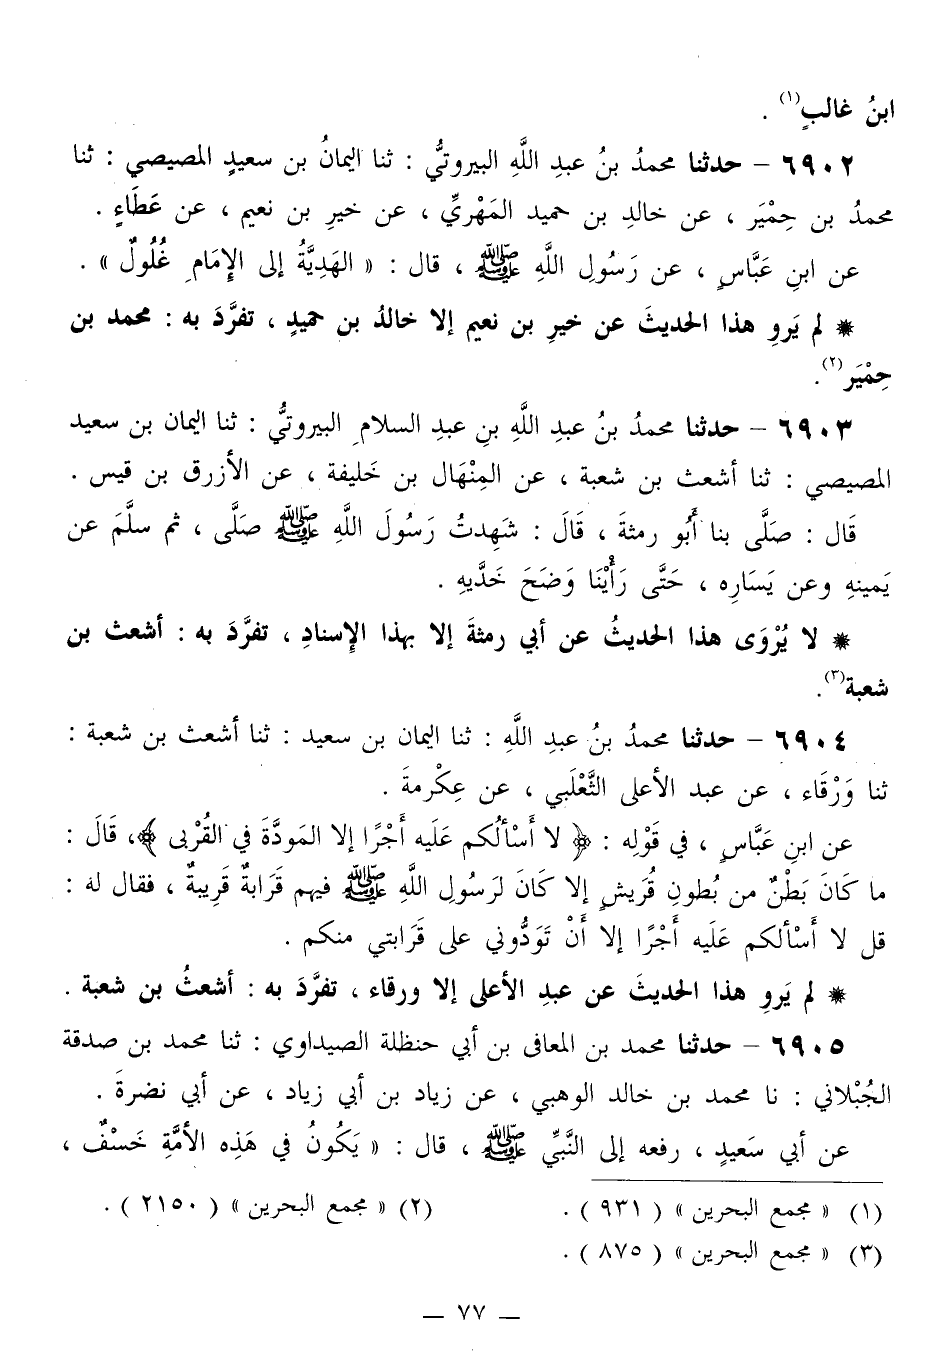 ابنُ غالبٍ(١) .
٦٩٠٢ – حدثنا محمدُ بنُ عبدِ اللَّهِ البيروتيُّ : ثنا اليمانُ بن سعيدٍ المصيصي : ثنا
محمدُ بن حِمْيَر ، عن خالدِ بن حميد المَهْريِّ ، عن خيرِ بن نعيم ، عن عَطَاءٍ .
عن ابنِ عَبَّاسٍ ، عن رَسُولِ اللَّهِ ﷺ ، قال : « الهَدِيَّةُ إلى الإِمَامِ غُلُولٌ » .
✵ لم يَروِ هذا الحديثَ عن خيرِ بن نعيم إلا خالدُ بن حميدٍ ، تفرَّدَ به : محمد بن
حِمْيَر(٢).
٦٩٠٣ – حدثنا محمدُ بنُ عبدِ اللَّهِ بنِ عبدِ السلامِ البيروتيُّ : ثنا اليمان بن سعيد
المصيصي : ثنا أشعث بن شعبة ، عن المِنْهَال بن خَليفة ، عن الأزرق بن قيس .
قَال : صَلَّى بنا أَبُو رمثةَ ، قَالَ : شَهِدتُ رَسُولَ اللَّهِ ﷺ صَلَّى ، ثم سلَّمَ عن
يَمينهِ وعن يَسَارِه ، حَتَّى رَأَيْنَا وَضَحَ خَدَّيهِ .
✵ لا يُرْوَى هذا الحديثُ عن أبي رمثةَ إلا بهذا الإِسنادِ ، تفرَّدَ به : أشعث بن
شعبة(٣).
٦٩٠٤ – حدثنا محمدُ بنُ عبدِ اللَّهِ : ثنا اليمان بن سعيد : ثنا أشعث بن شعبة :
ثنا وَرْقَاء ، عن عبد الأعلى الثَّعْلَبي ، عن عِكْرمةَ .
عن ابنِ عَبَّاسٍ ، في قَوْلِه : ﴿ لا أَسْأَلُكم عَلَيه أَجْرًا إلا المَودَّةَ في القُرْبى ﴾، قَالَ :
ما كَانَ بَطْنٌ من بُطونِ قُرَيشٍ إلا كَانَ لرَسُولِ اللَّهِ ﷺ فيهم قَرَابةٌ قَرِيبةٌ ، فقال له :
قل لا أَسْألكم عَلَيه أَجْرًا إلا أَنْ تَوَدُّوني على قَرَابتي منكم .
✵ لم يَروِ هذا الحديثَ عن عبدِ الأعلى إلا ورقاء ، تفرَّدَ به : أشعثُ بن شعبة .
٦٩٠٥ – حدثنا محمد بن المعافى بن أبي حنظلة الصيداوي : ثنا محمد بن صدقة
الجُبْلاني : نا محمد بن خالد الوهبي ، عن زياد بن أبي زياد ، عن أبي نضرةَ .
عن أبي سَعيدٍ ، رفعه إلى النَّبِّي ﷺ ، قال : « يَكُونُ في هَذِه الأمَّةِ خَسْفٌ ،
(١) « مجمع البحرين » ( ٩٣١ ) . (٢) « مجمع البحرين » ( ٢١٥٠ ) .
(٣) « مجمع البحرين » ( ٨٧٥ ) .
— ٧٧ —